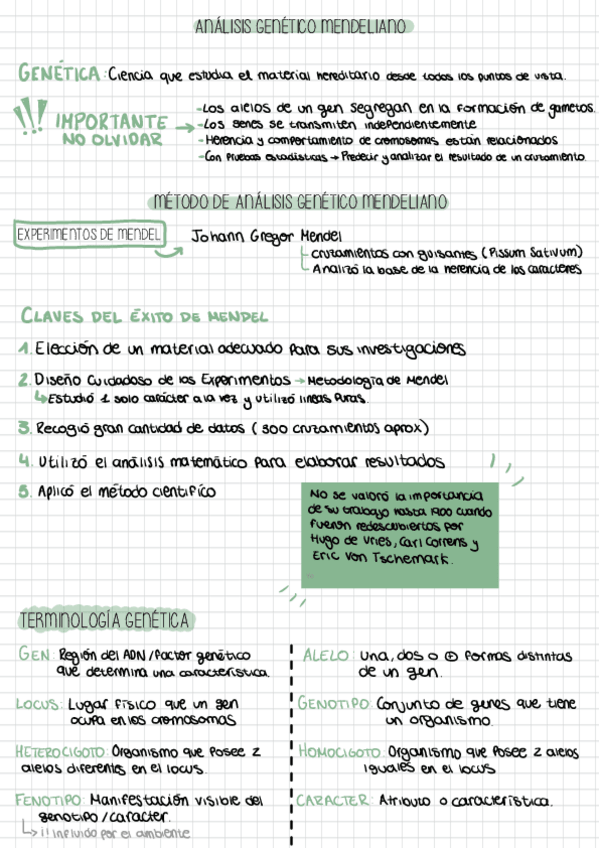 ANÁLISIS GENÉTICO MENDELIANO
GENÉTICA: Ciencia que estudia el material hereditario desde todos los puntos de vista.
!!! IMPORTANTE
NO OLVIDAR
-Los alelos de un gen segregan en la formación de gametos.
-Los genes se transmiten independientemente
-Herencia y comportamiento de cromosomas están relacionados
-Con pruebas estadísticas → Predecir y analizar el resultado de un cruzamiento.
MÉTODO DE ANÁLISIS GENÉTICO MENDELIANO
EXPERIMENTOS DE MENDEL
Johann Gregor Mendel
cruzamientos con guisantes (Pissum Sativum)
Analizó la base de la herencia de los caracteres
CLAVES DEL ÉXITO DE MENDEL
1. Elección de un material adecuado para sus investigaciones
2. Diseño Cuidadoso de los Experimentos → Metodología de Mendel
↳Estudió 1 solo carácter a la vez y utilizó líneas puras.
3. Recogió gran cantidad de datos (300 cruzamientos aprox)
4. Utilizó el análisis matemático para elaborar resultados
5. Aplicó el método científico
No se valoró la importancia
de su trabajo hasta 1900 cuando
fueron redescubiertos por
Hugo de Vries, Carl Correns y
Eric Von Tschemark.
TERMINOLOGÍA GENÉTICA
GEN: Región del ADN/Factor genético
que determina una característica.
LOCUS: Lugar físico que un gen
ocupa en los cromosomas
HETEROCIGOTO: Organismo que posee 2
alelos diferentes en el locus.
FENOTIPO: Manifestación visible del
genotipo/carácter.
↳ !! Influido por el ambiente
ALELO: Una, dos o ⊕ formas distintas
de un gen.
GENOTIPO: Conjunto de genes que tiene
un organismo.
HOMOCIGOTO: Organismo que posee 2 alelos
iguales en el locus
CARACTER: Atributo o característica.